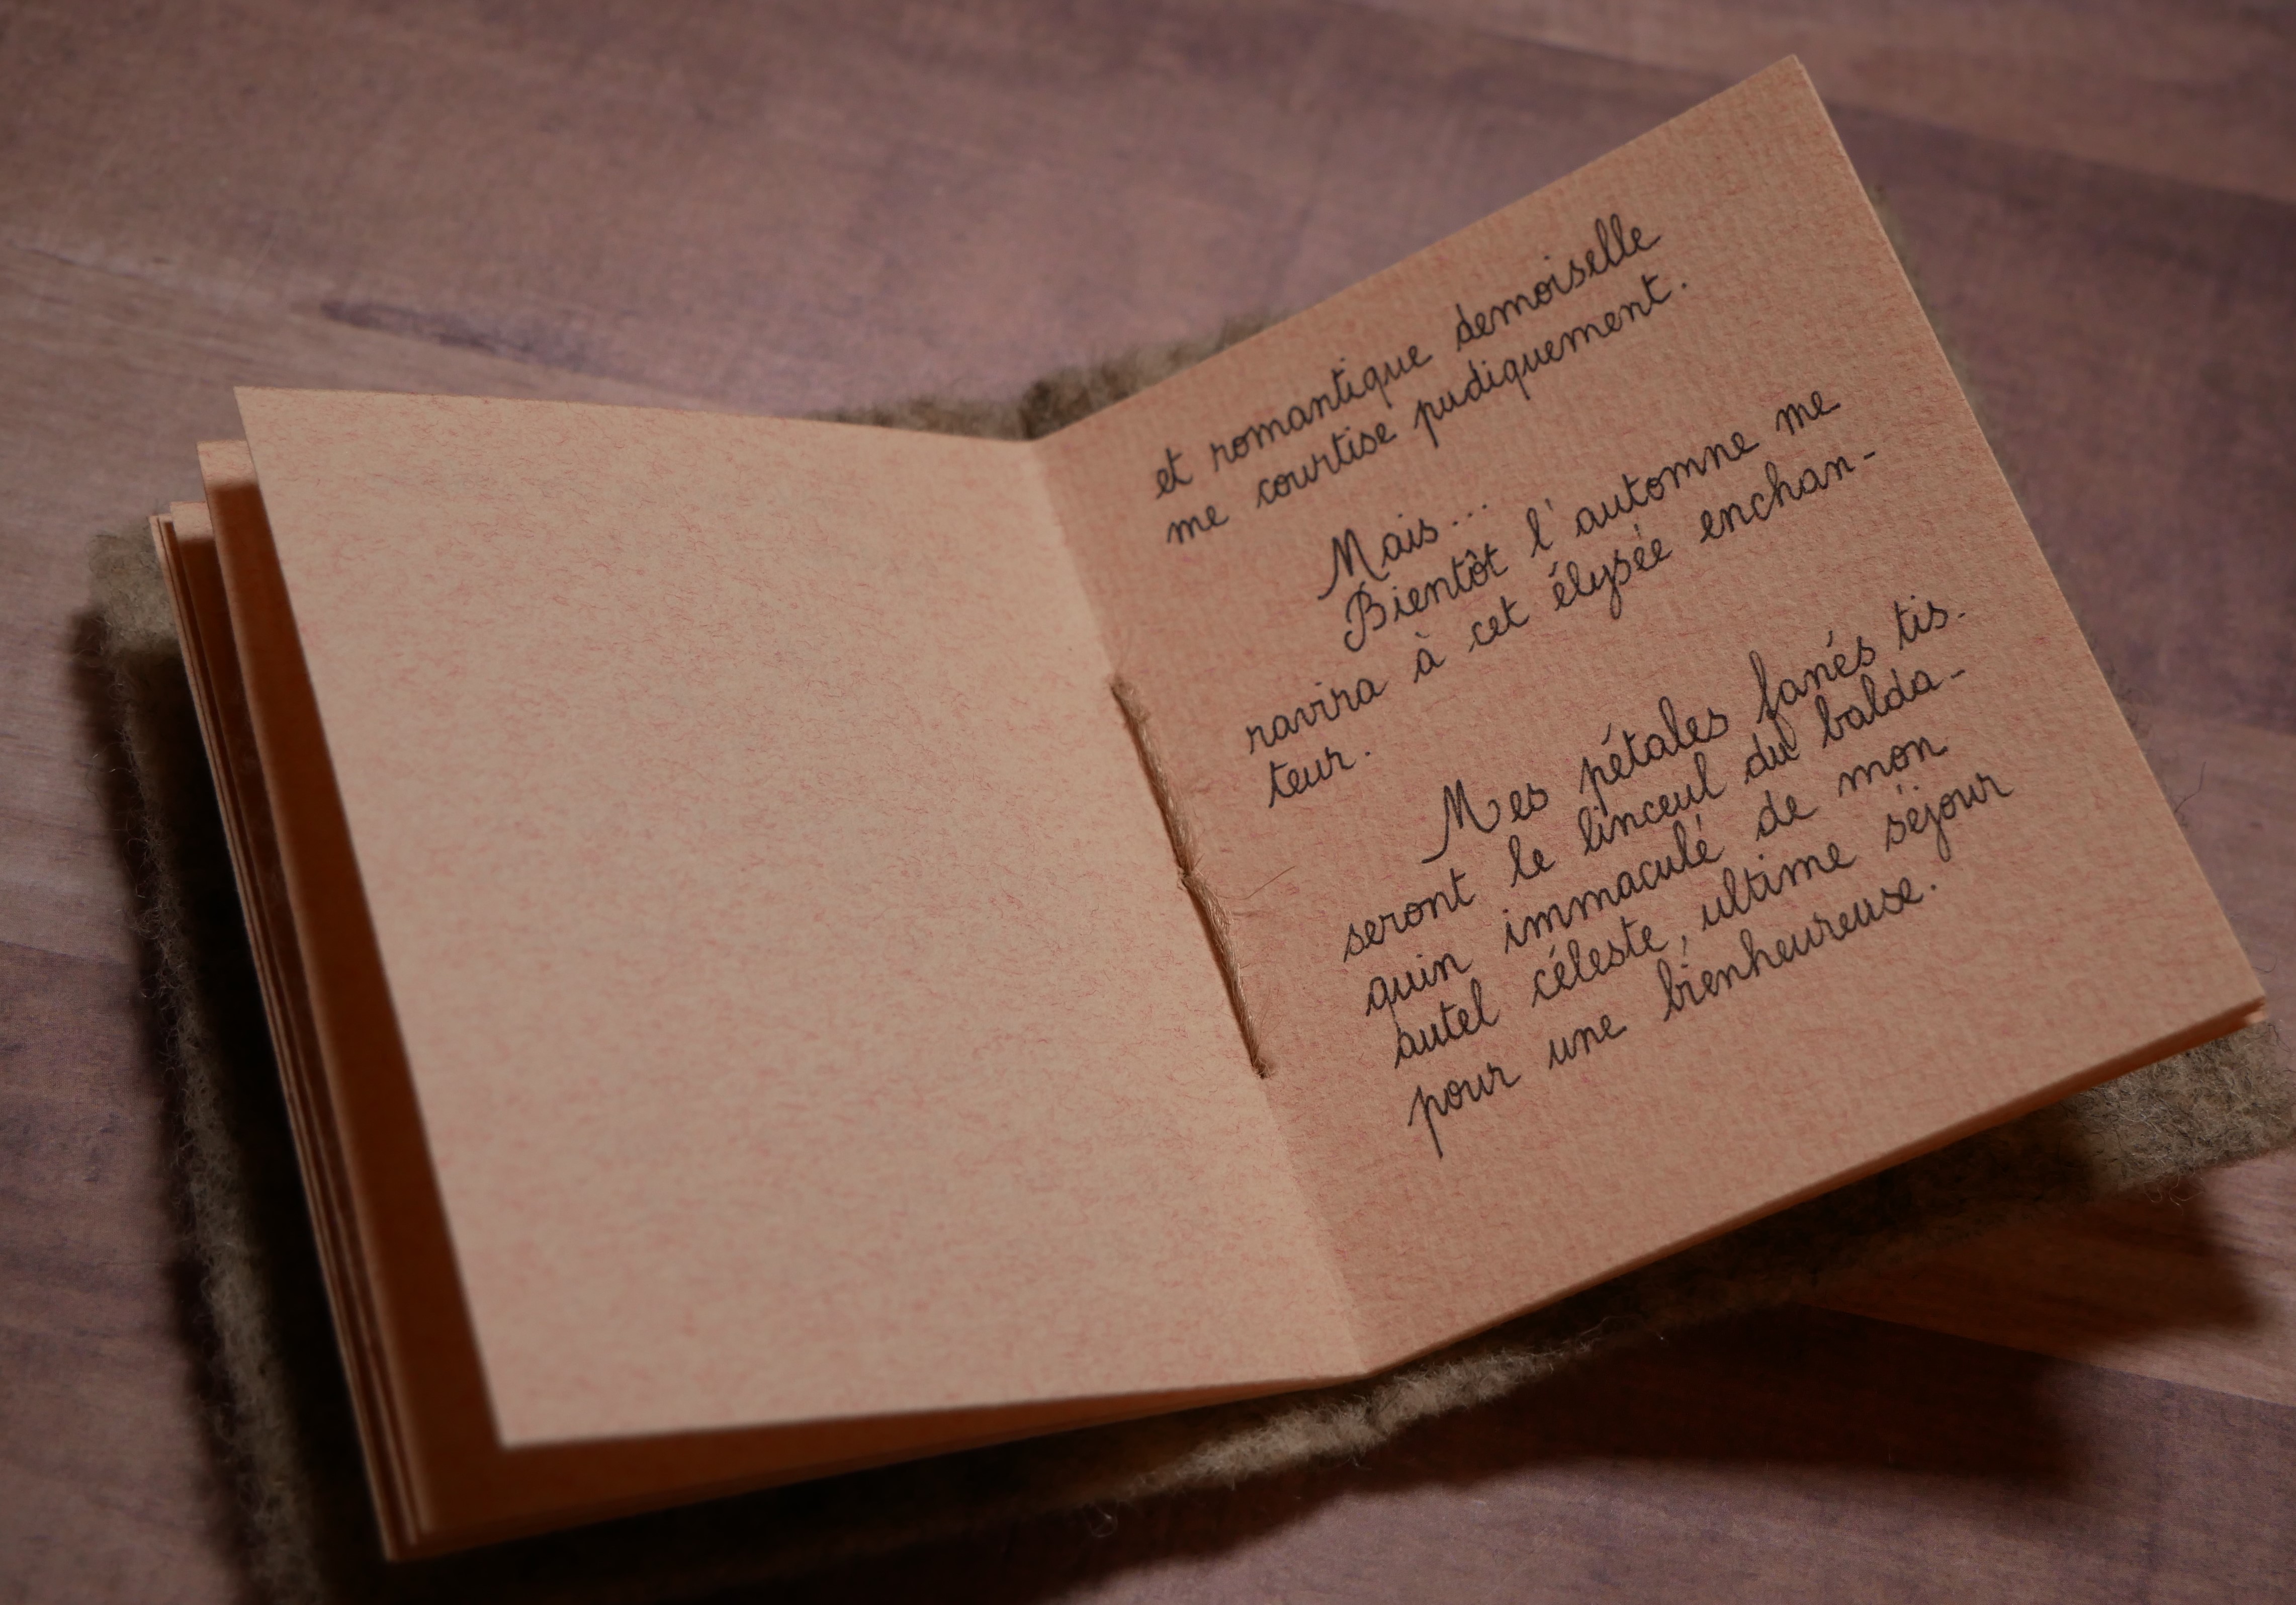 et romantique demoiselle
me courtise pudiquement.
Mais...
Bientôt l'automne me
ravira à cet élysée enchan-
teur.
Mes pétales fanés tis-
seront le linceul du balda-
quin immaculé de mon
autel céleste, ultime séjour
pour une bienheureuse.